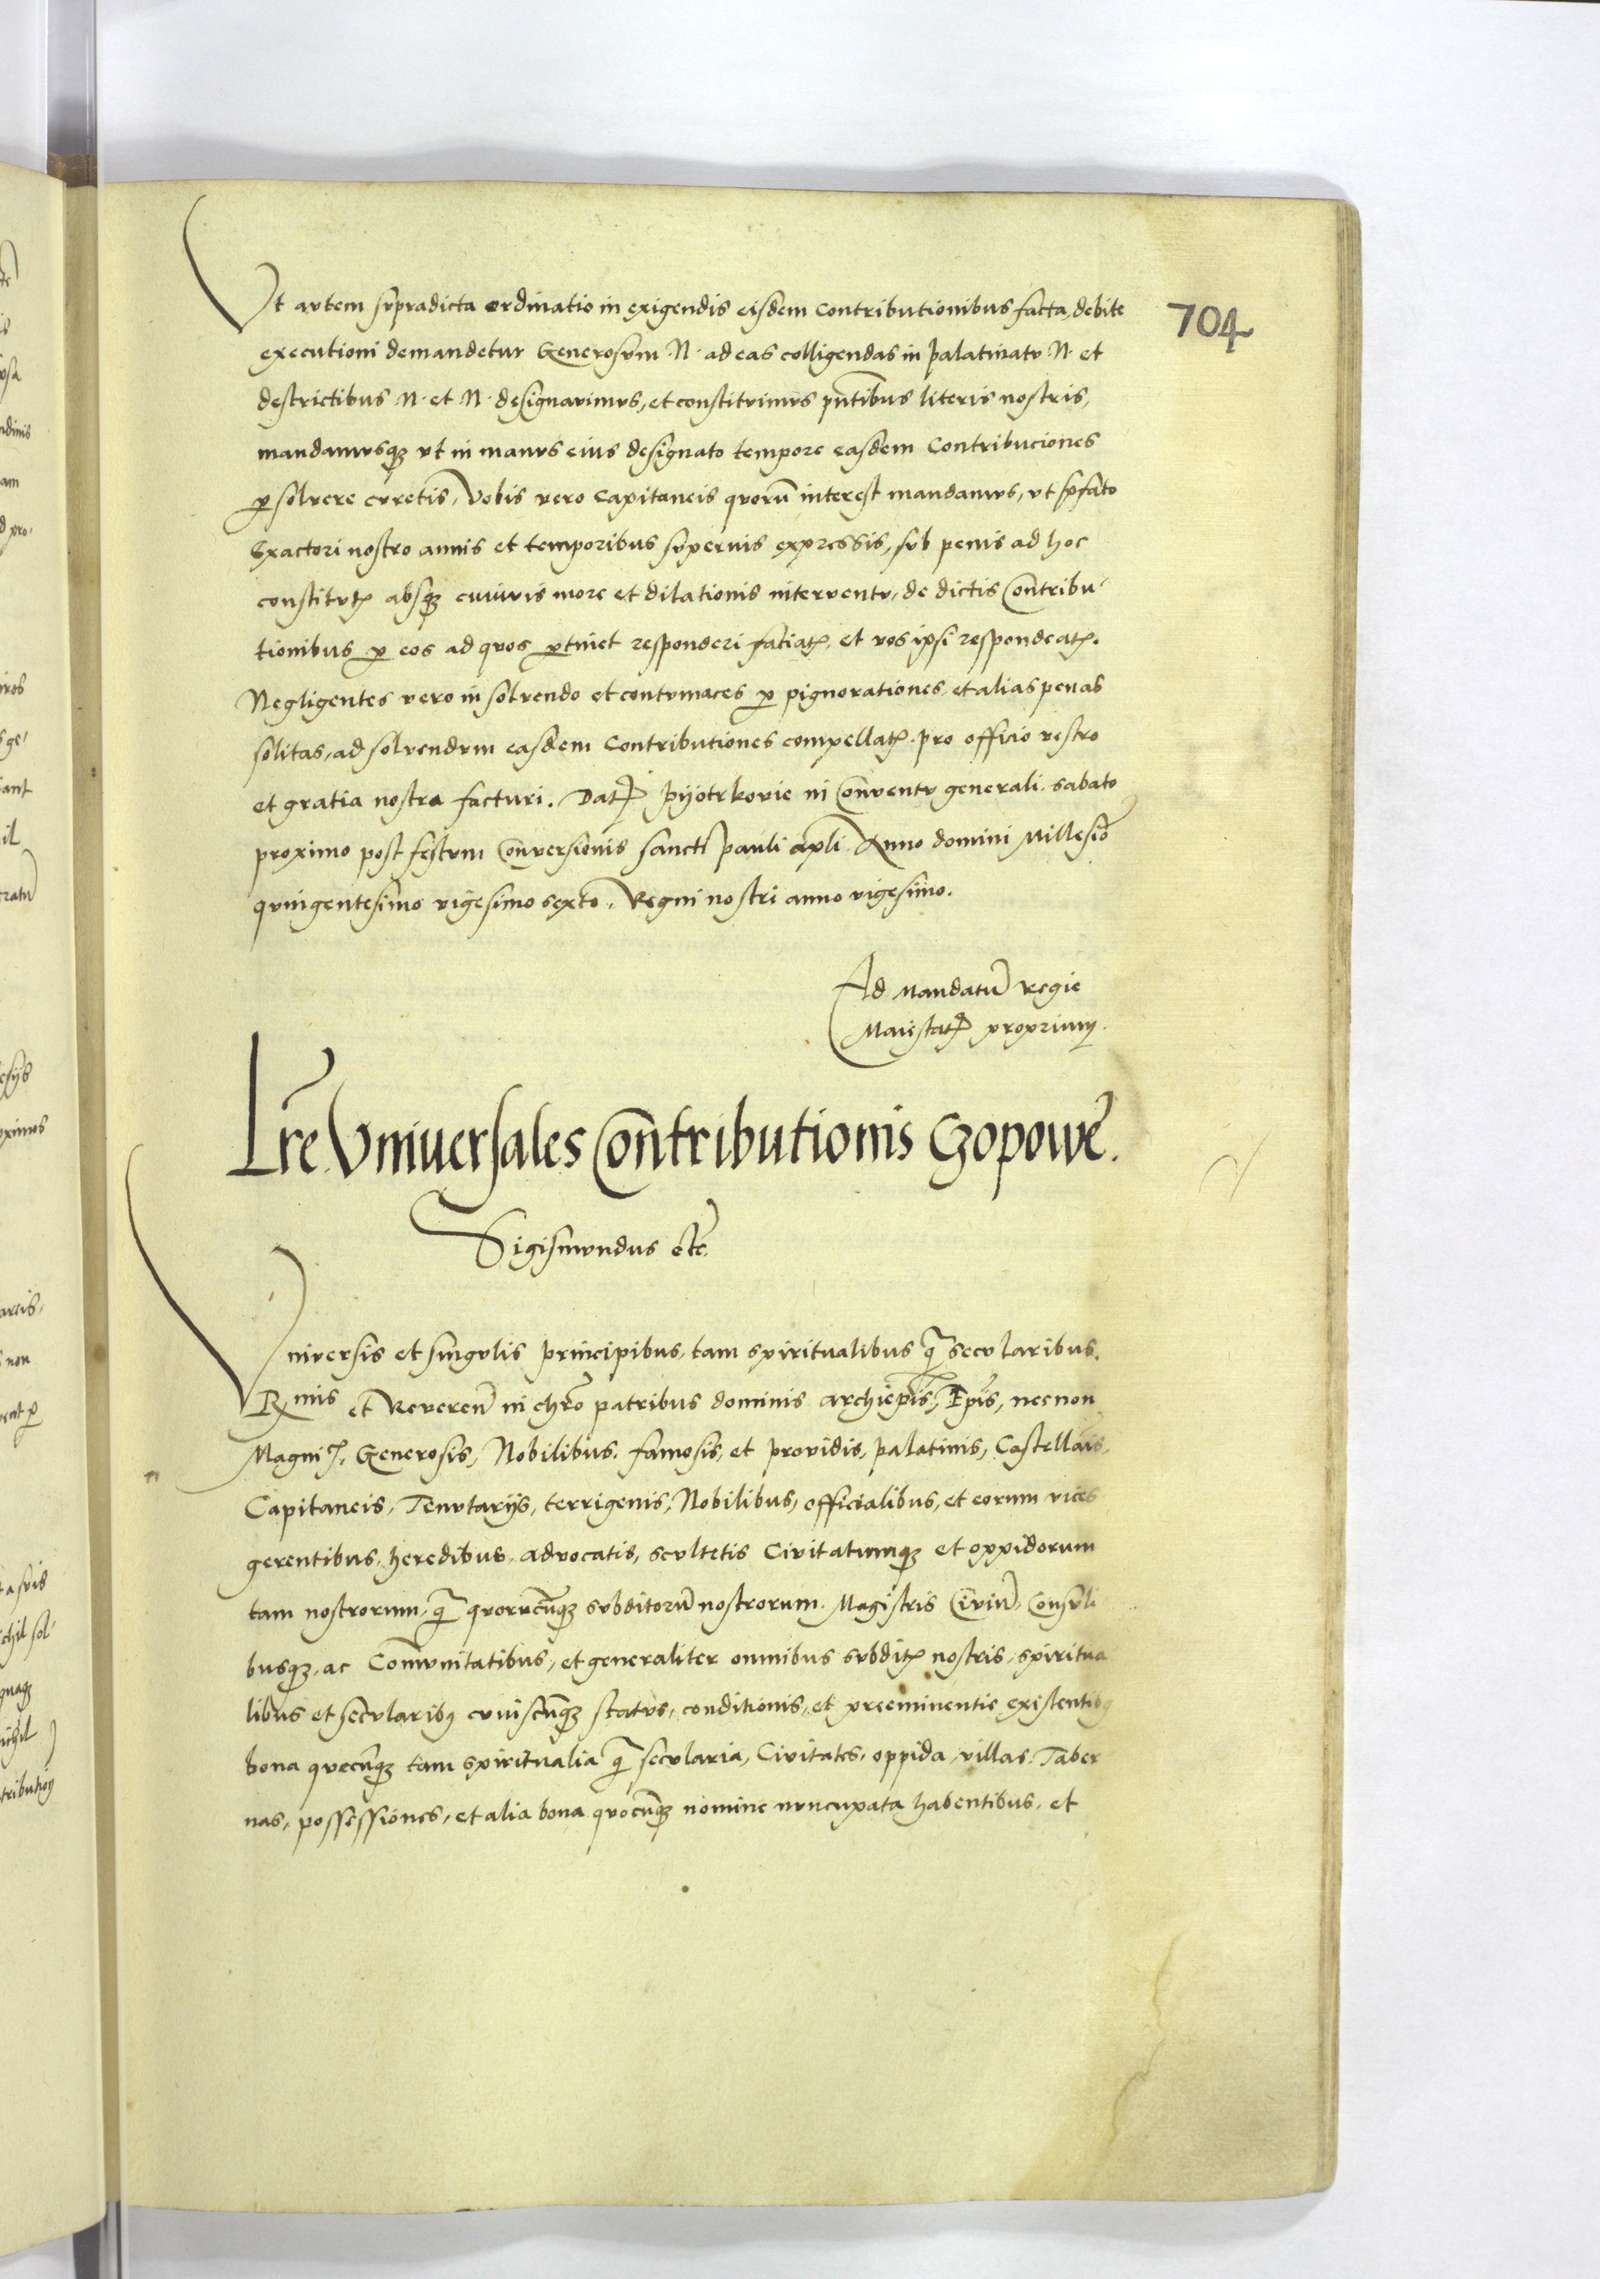 Vt avtem svpradicta ordinatio in exigendis eisdem Contributionibus facta, debite
704
executioni demandetur Generosvm N. ad eas colligendas in palatinatv N. et
destrictibus N. et N. designavimvs, et constitvimvs pn̄tibus literis nostris,
mandamvsqꝫ vt in manvs eius designato tempore easdem Contribuciones
ꝑsolvere cvretis, Vobis vero Capitaneis qvorū interest mandamvs, vt p̄fato
Exactori nostro annis et temporibus svpervis expressis, svb penis ad hoc
constitvtꝭ absqꝫ cuiuvis more et dilationis interventv, de dictis Contribu-
tionibus ꝑ eos ad qvos ꝑtinet responderi faciatꝭ, et vos ipsi respondeatꝭ.
Negligentes vero in solvendo et contvmaces ꝑ pignorationes et alias penas
solitas, ad solvendvm easdem Contributiones compellatꝭ. pro officio vestro
et gratia nostra facturi. Datꝭ Pijotrkovie in Conventv generali. Sabato
proximo post festvm Conversionis sancti Pauli apli. Anno domini Millesīo
qvingentesimo vigesimo sexto. Regni nostri anno vigesimo.
Ad Mandatū Regie
Maiestatꝭ proprium.
Lrē Vniuersales Contributionis Czopowe.
Sigismvndus etc̄.
Vniversis et singvlis principibus, tam spiritualibus q̄ secvlaribus.
Rmis et Reveren̄ in chrō patribus dominis archiepīs, Epīs, necnon
Magnicꝭ, Generosis, Nobilibus, famosis, et providis, palatinis, Castellāis,
Capitaneis, Tenvtarijs, terrigenis, Nobilibus, officialibus, et eorum vices
gerentibus, heredibus, advocatis, scvltetis Civitatumqꝫ et oppidorum
tam nostrorum, q̄ qvorvcūqꝫ svbditorū nostrorum. Magistris Civiū, Consvli
busqꝫ, ac Com̄vnitatibus, et generaliter omnibus svbditꝭ nostris, spiritua
libus et secvlaribꝰ cvivscūqꝫ statvs, conditionis, et preeminentie existentibꝰ
bona qvecūqꝫ tam spiritvalia q̄ secvlaria, Civitates, oppida, villas, Taber
nas, possessiones, et alia bona qvocūqꝫ nomine nvncvpata habentibus, et